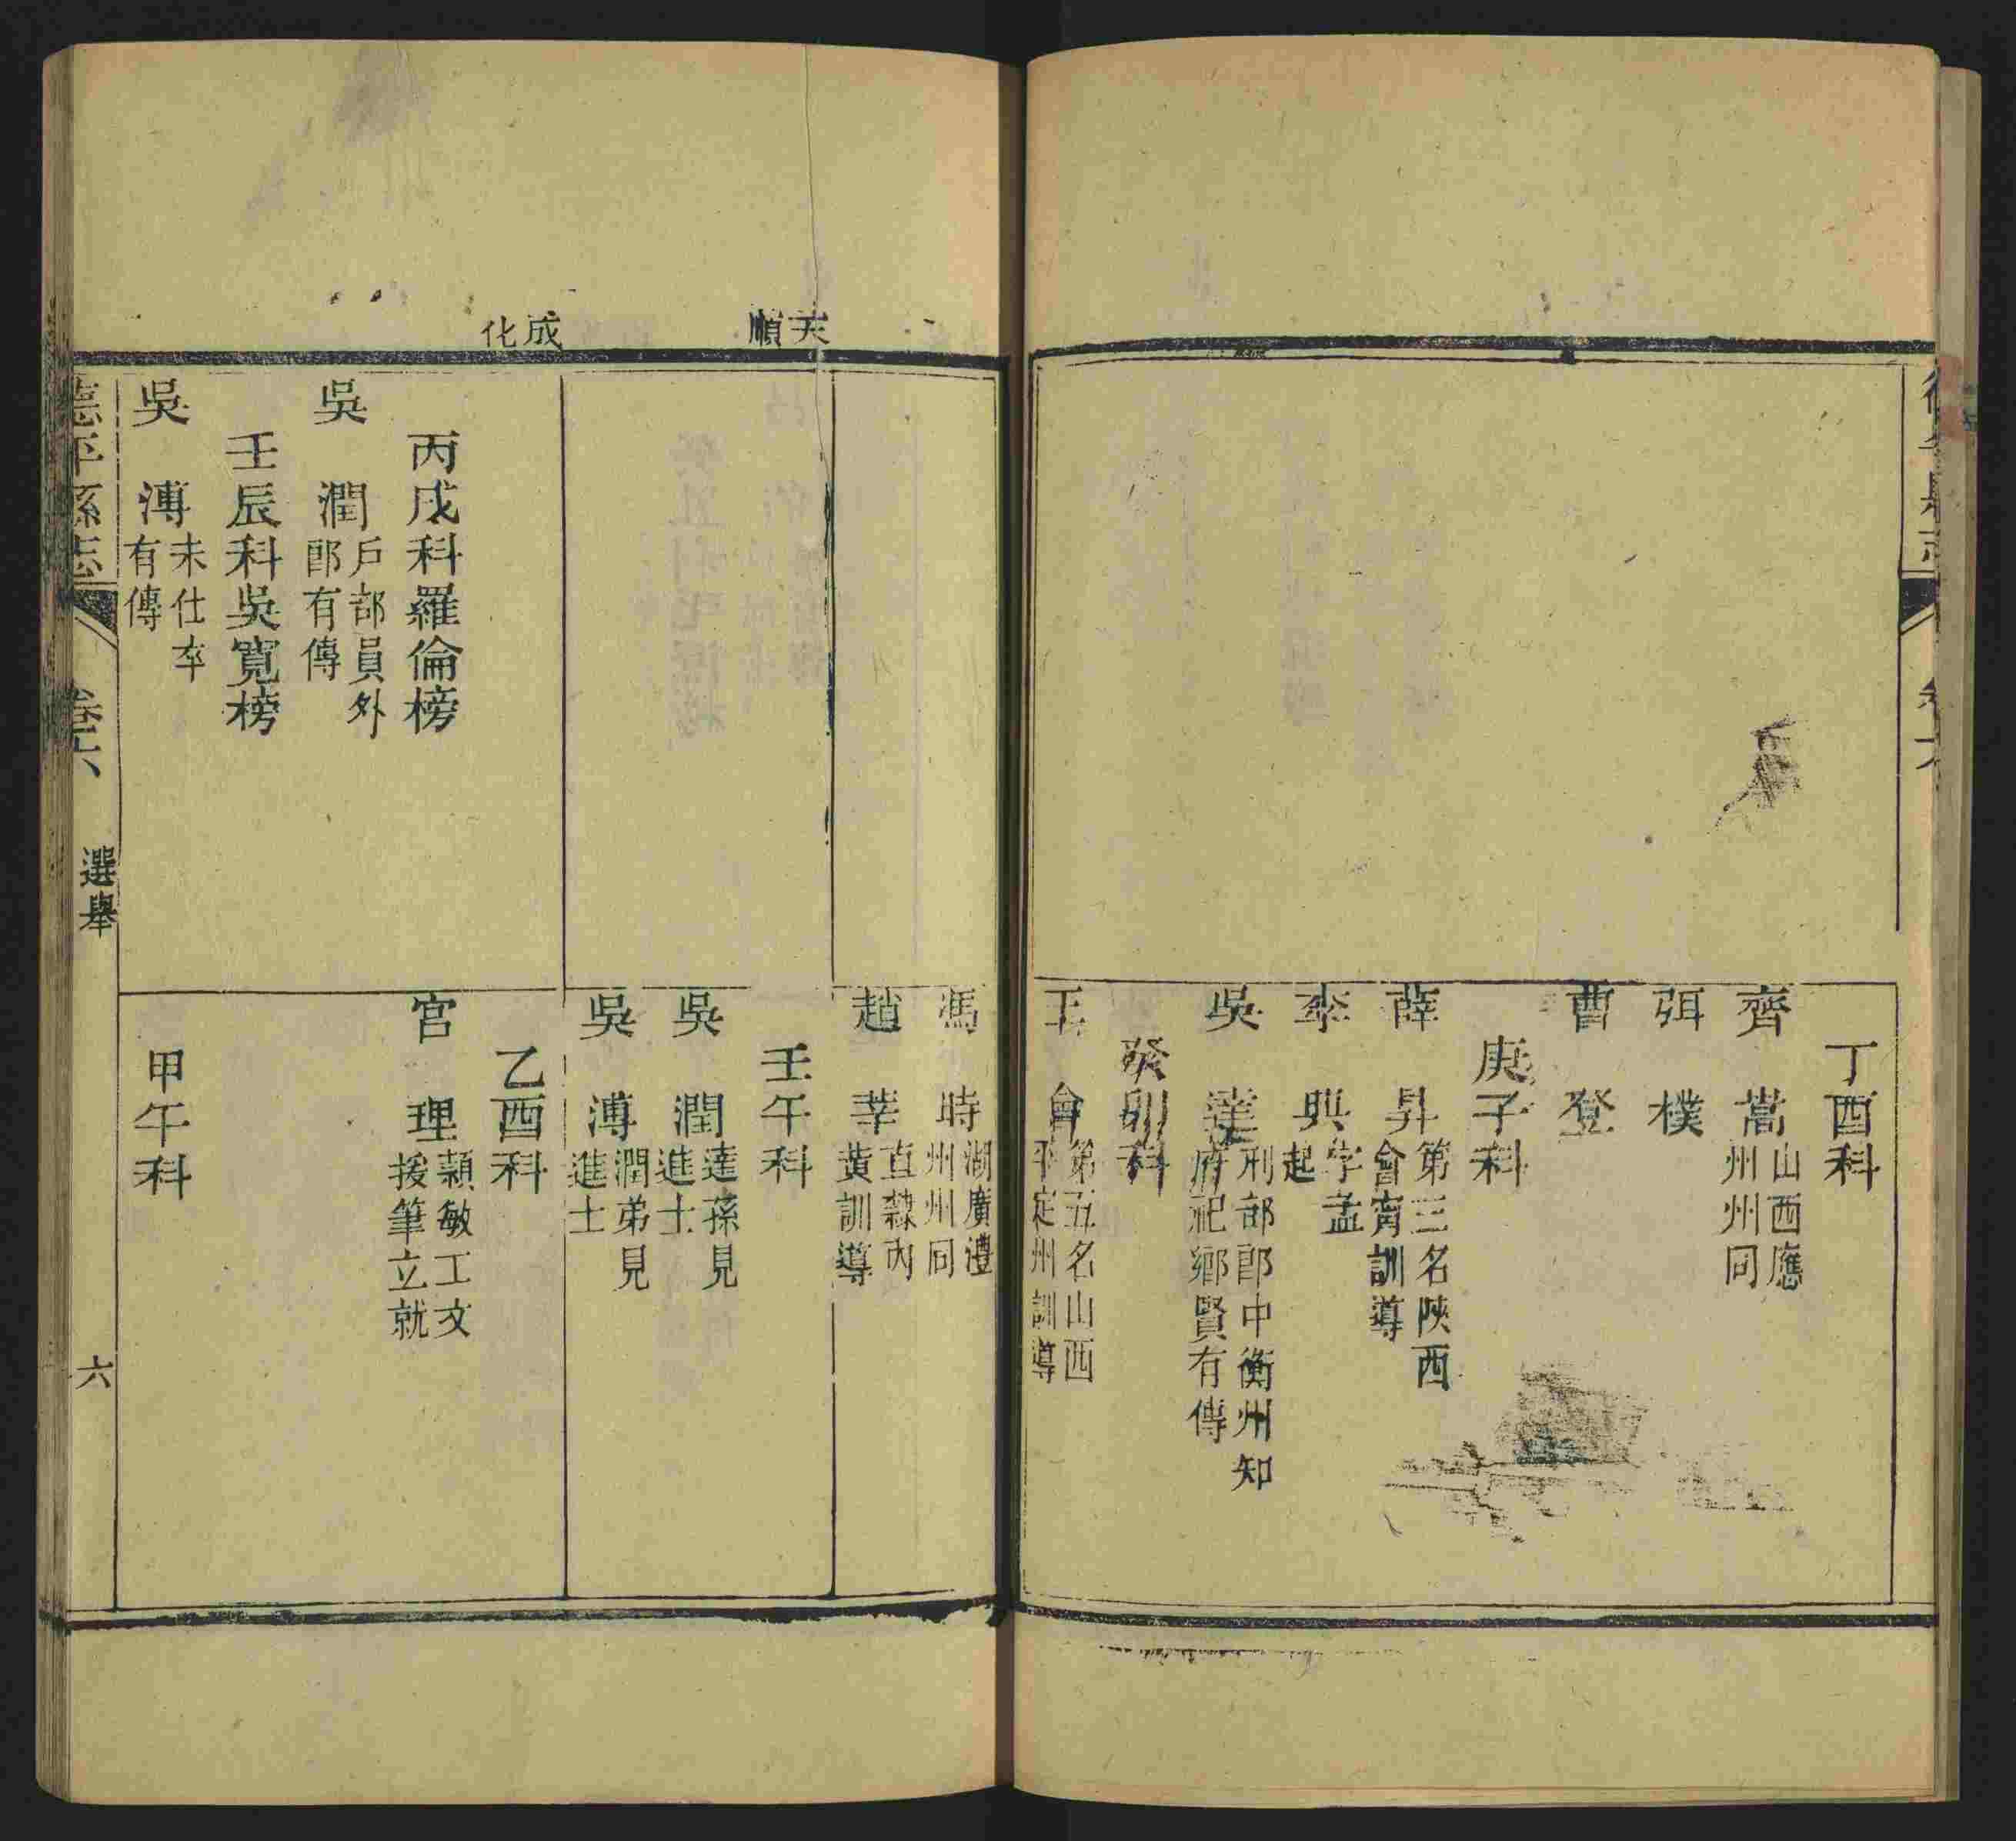 丁酉科
齊 嵩 山西應
州州同
弭 樸
曹 登
庚子科
薛 昇 第三名陝西
會甯訓導
李 興 字孟
起
吳 達 刑部郎中衡州知
府祀鄉賢有傳
癸卯科
王 會 第五名山西
平定州訓導
馮 時 湖廣澧
州州同
趙 莘 直隸內
黃訓導
天順
壬午科
吳 潤 達孫見
進士
吳 溥 潤弟見
進士
成化
丙戌科羅倫榜
吳 潤 戶部員外
郎有傳
壬辰科吳寬榜
吳 溥 未仕卒
有傳
乙酉科
宮 理 穎敏工文
援筆立就
甲午科
德平縣志 卷六 選舉 六